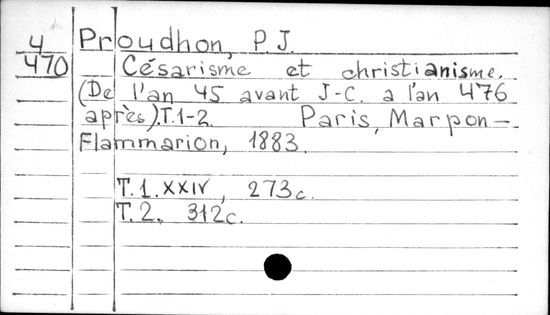 4 Proudhon, P.J.
470 Césarisme et christianisme.
(De l'an 45 avant J-C. a l'an 476
après).T.1-2. Paris, Marpon-
Flammarion, 1883.
T.1. XXIV, 273c.
T.2. 312c.